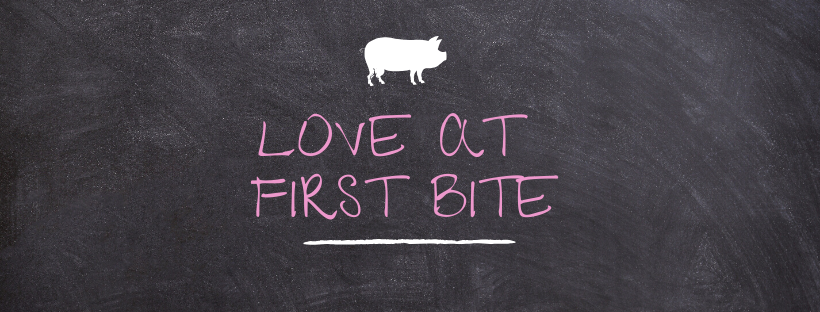 LOVE AT
FIRST BITE